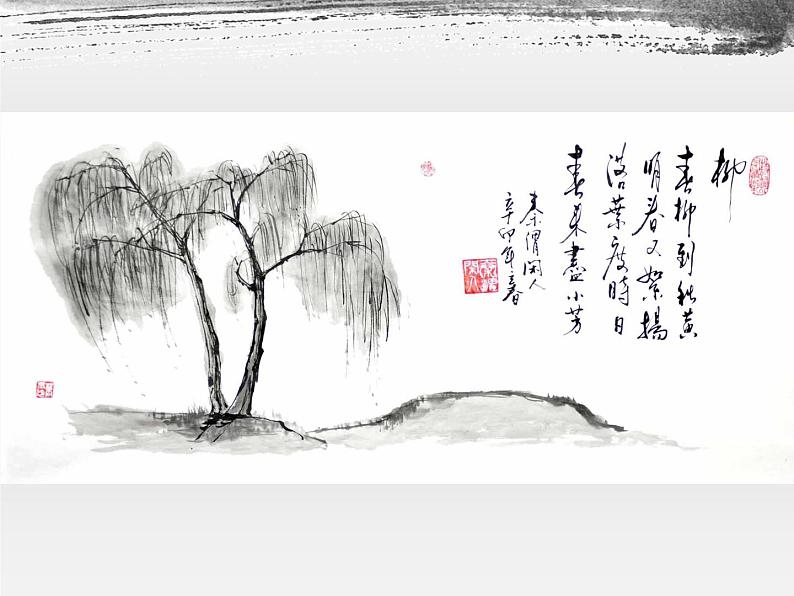 柳
春柳到秋黄
明春又絮揚
落葉度時日
春来盡小芳
秦渭闲人
辛卯年立春